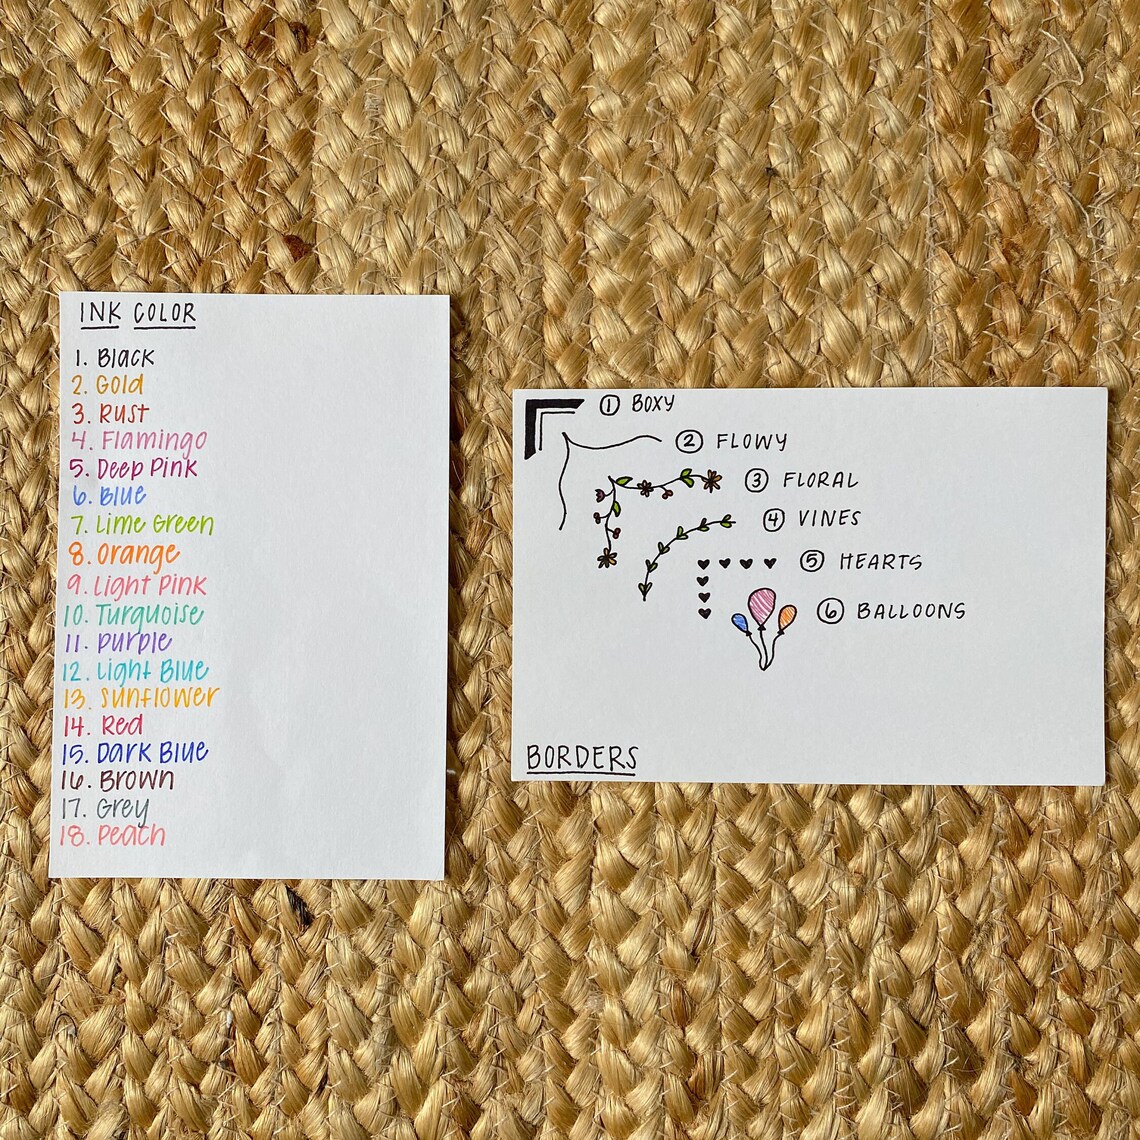 INK COLOR
1. Black
2. Gold
3. Rust
4. Flamingo
5. Deep Pink
6. Blue
7. Lime Green
8. Orange
9. Light Pink
10. Turquoise
11. Purple
12. Light Blue
13. Sunflower
14. Red
15. Dark Blue
16. Brown
17. Grey
18. Peach
1 BOXY
2 FLOWY
3 FLORAL
4 VINES
5 HEARTS
6 BALLOONS
BORDERS